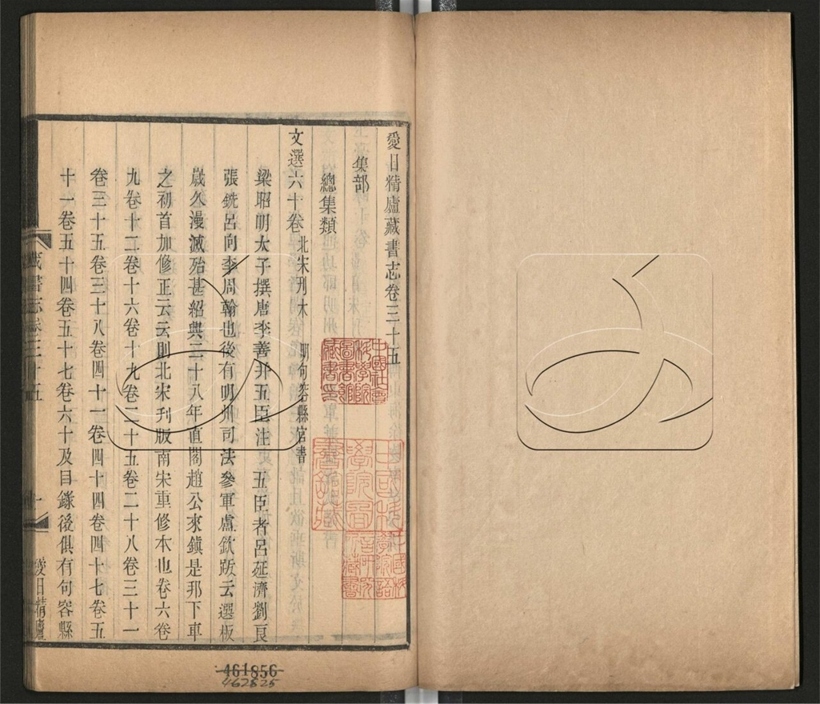 愛日精廬藏書志卷三十五
集部
總集類
文選六十卷 北宋刊本 明句容縣官書
梁昭明太子撰唐李善并五臣注五臣者呂延濟劉良
張銑呂向李周翰也後有明州司法參軍盧欽跋云選板
歲久漫滅殆甚紹興二十八年直閣趙公來鎮是邦下車
之初首加修正云云則北宋刊版南宋重修本也卷六卷
九卷十二卷十六卷十九卷二十五卷二十八卷三十一
卷三十五卷三十八卷四十一卷四十四卷四十七卷五
十一卷五十四卷五十七卷六十及目錄後俱有句容縣
藏書志卷三十五
一
愛日精廬
461856
462825